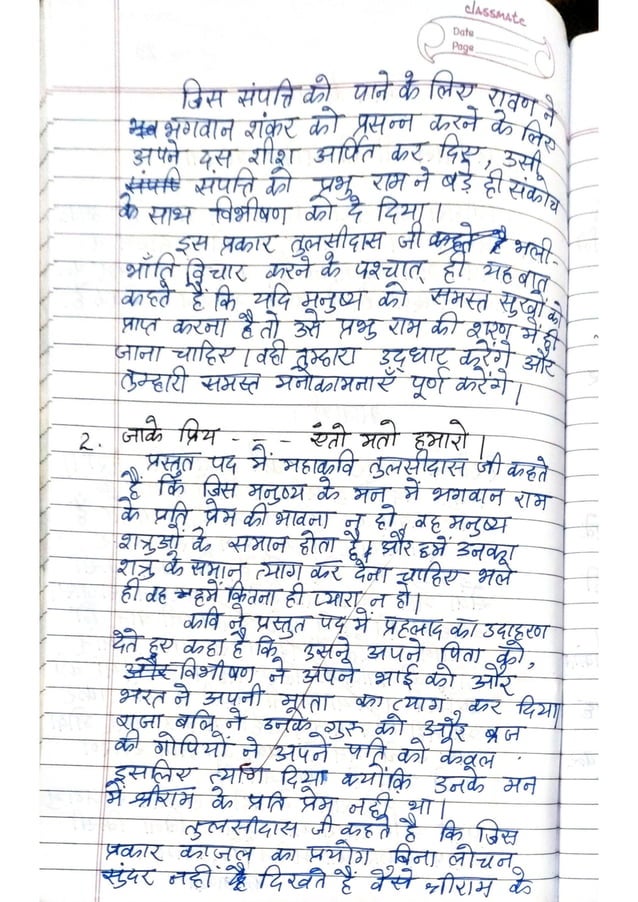 classmate
Date
Page
जिस संपत्ति को पाने के लिए रावण ने
भगवान शंकर को प्रसन्न करने के लिए
अपने दस शीश अर्पित कर दिए, उसी
संपत्ति को प्रभु राम ने बड़े ही संकोच
के साथ विभीषण को दे दिया।
इस प्रकार तुलसीदास जी भली-
भाँति विचार करने के पश्चात् ही यह बात
कहते है कि यदि मनुष्य को समस्त सुखों को
प्राप्त करना है तो उसे प्रभु राम की शरण में ही
जाना चाहिए। वही तुम्हारा उद्धार करेंगे और
तुम्हारी समस्त मनोकामनाएँ पूर्ण करेंगे।
2. जाके प्रिय - - - एतो मतो हमारो।
प्रस्तुत पद में महाकवि तुलसीदास जी कहते
हैं कि जिस मनुष्य के मन में भगवान राम
के प्रति प्रेम की भावना न हो, वह मनुष्य
शत्रुओं के समान होता है, और हमें उनका
शत्रु के समान त्याग कर देना चाहिए भले
ही वह हमें कितना ही प्यारा न हो।
कवि ने प्रस्तुत पद में प्रहलाद का उदाहरण
देते हुए कहा है कि उसने अपने पिता को,
विभीषण ने अपने भाई को और
भरत ने अपनी माता का त्याग कर दिया
राजा बलि ने उनके गुरु को और ब्रज
की गोपियों ने अपने पति को केवल
इसलिए त्याग दिया क्योंकि उनके मन
में श्रीराम के प्रति प्रेम नही था।
तुलसीदास जी कहते है कि जिस
प्रकार काजल का प्रयोग बिना लोचन
सुंदर नहीं दिखते हैं वैसे श्रीराम के